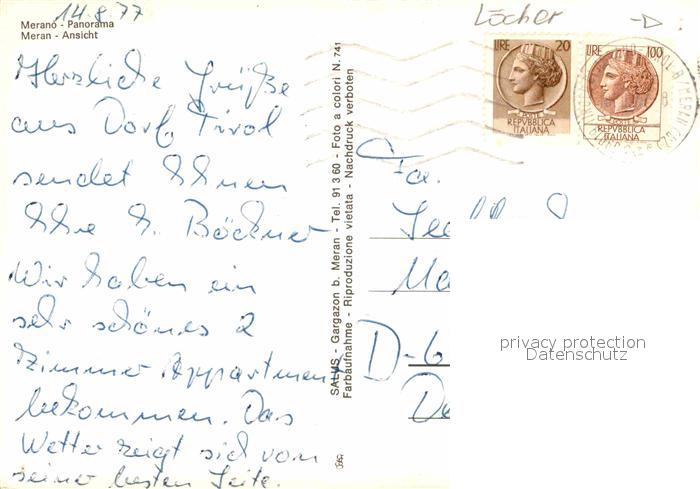 14.8.77
Löcher
Merano - Panorama
Meran - Ansicht
Herzliche Grüße
aus Dorf Tirol
sendet Ihnen
Ihre H. Böckner
Wir haben ein
sehr schönes 2
Zimmer Appartment
bekommen. Das
Wetter zeigt sich von
seiner besten Seite.
SALUS - Gargazon b. Meran - Tel. 91 3 60 - Foto a colori N. 741
Farbaufnahme - Riproduzione vietata - Nachdruck verboten
LIRE 20
POSTE
REPVBBLICA
ITALIANA
LIRE 100
POSTE
REPVBBLICA
ITALIANA
Fa.
Ma
D-6
privacy protection
Datenschutz